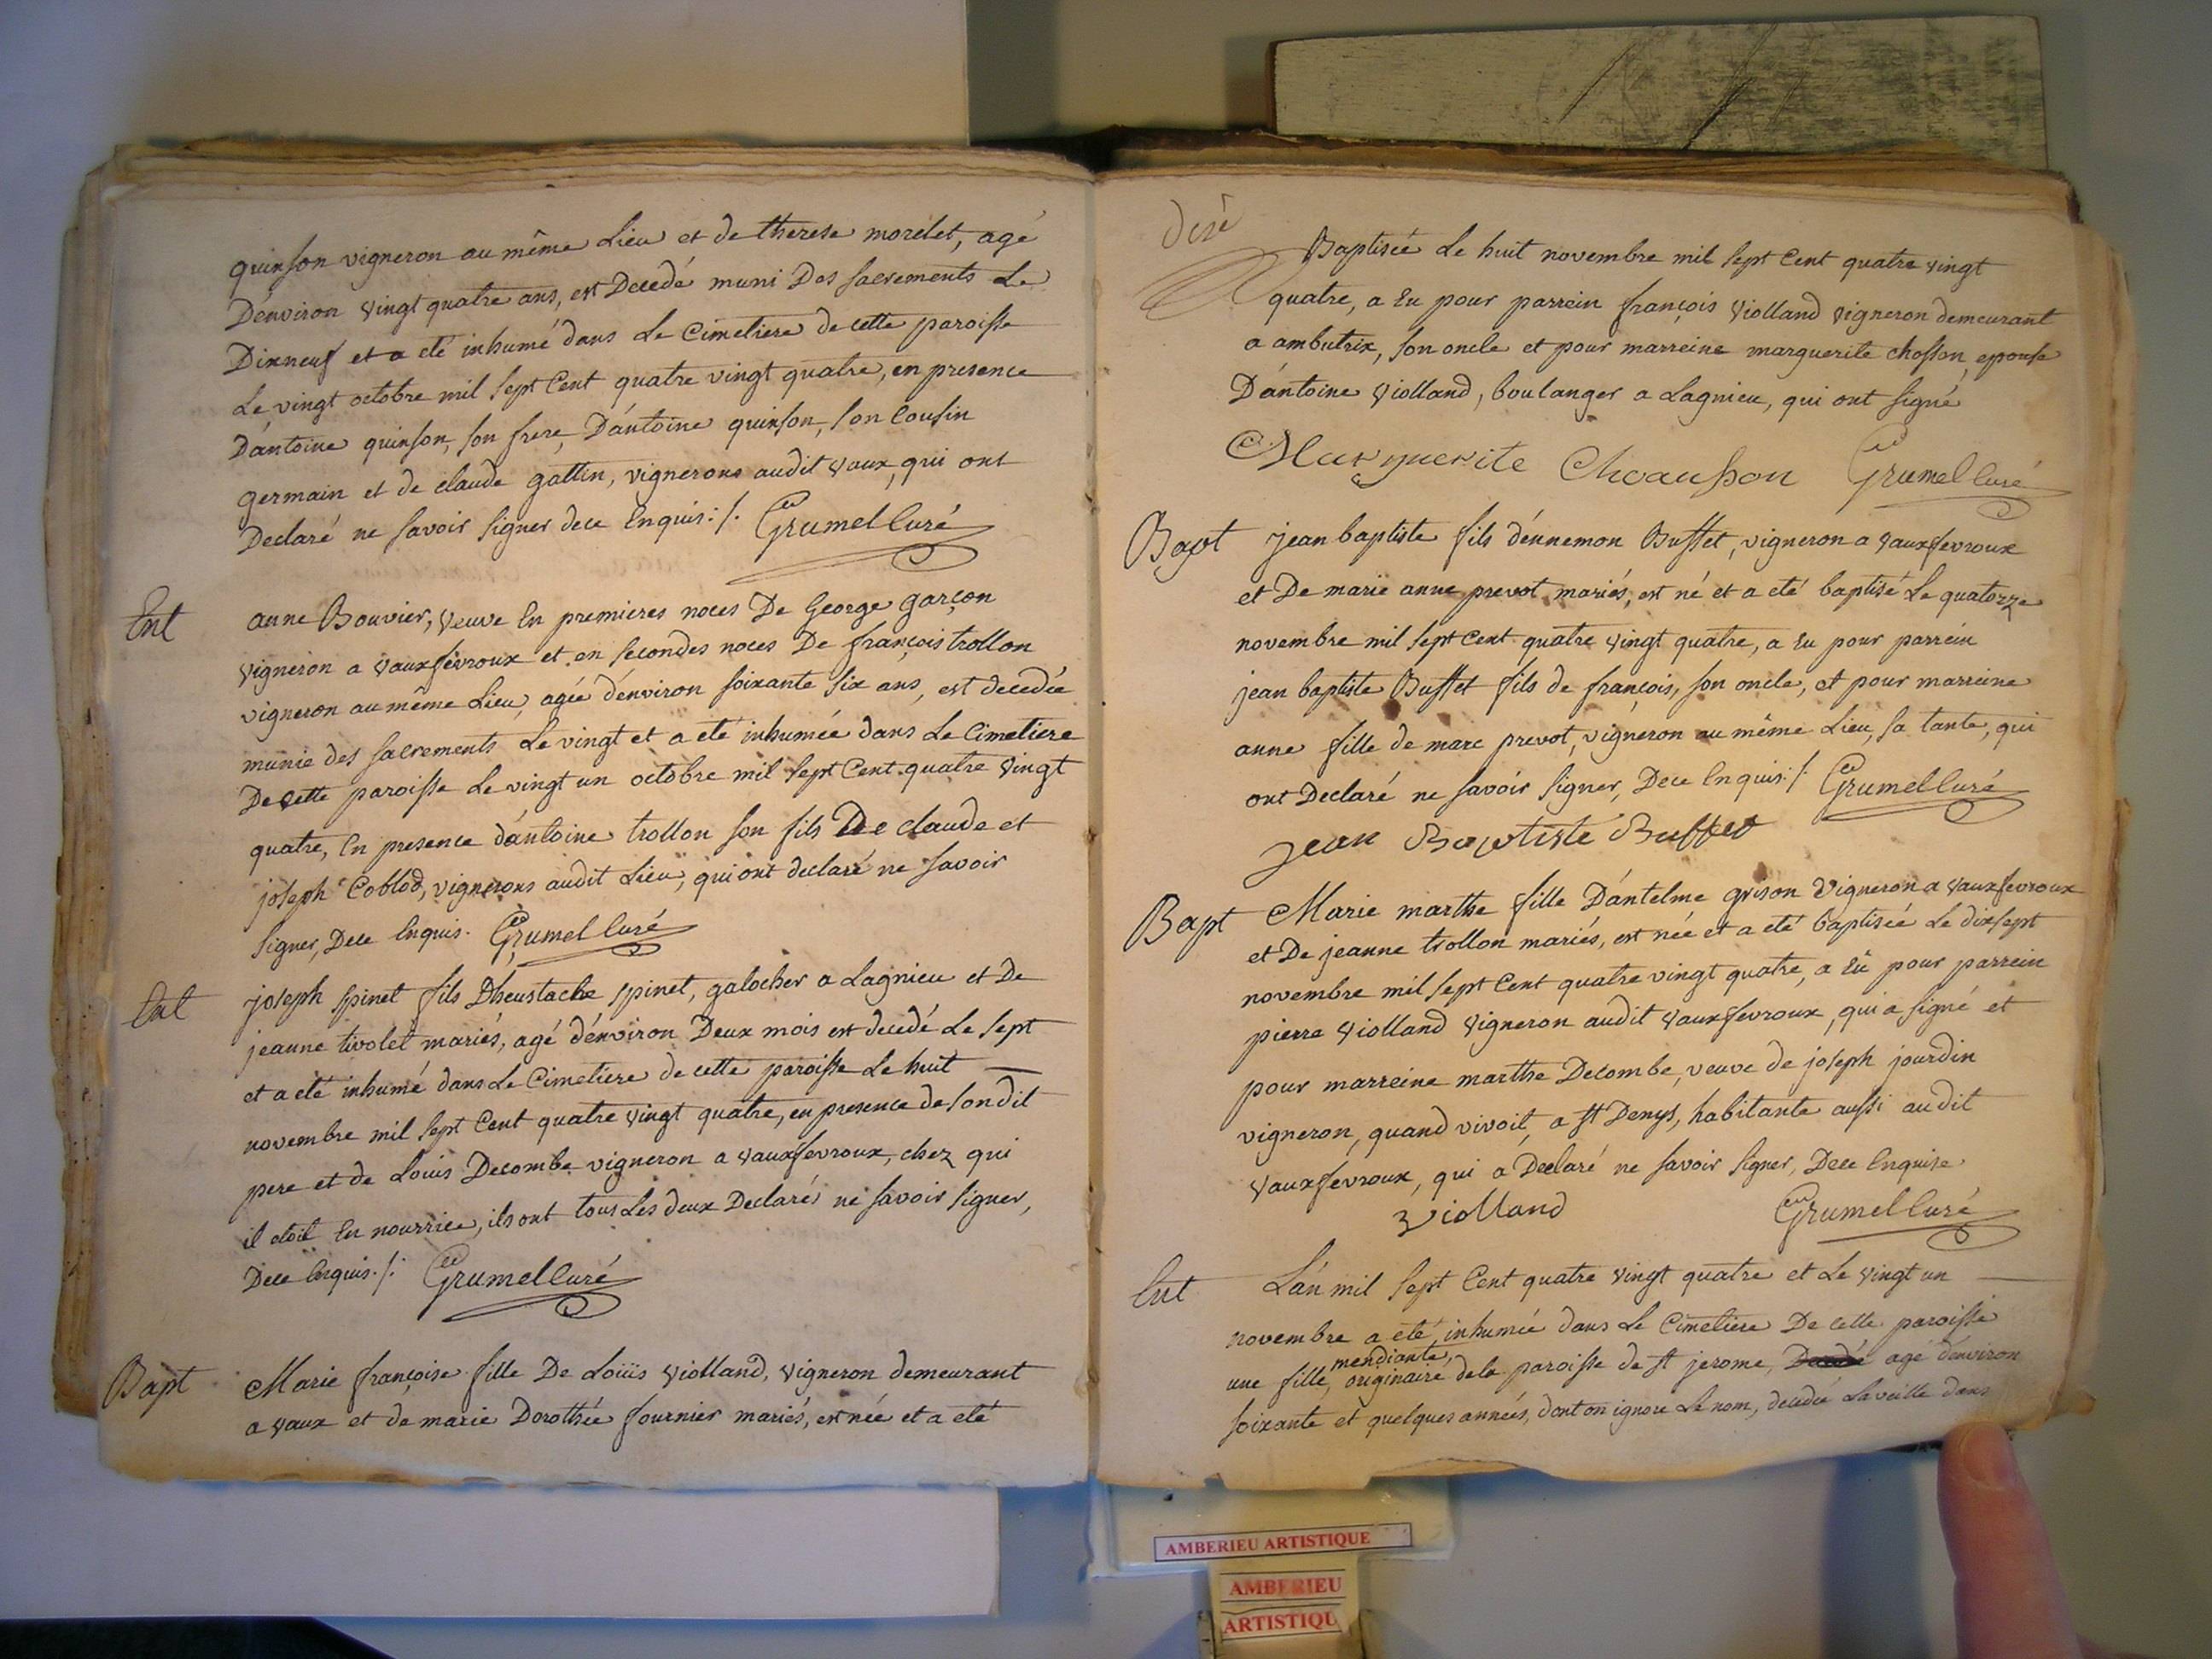 quinson vigneron au même Lieu et de therese morelet, agé
D'environ vingt quatre ans, est Decedé muni Des sacrements Le
Dixneuf et a eté inhumé dans Le Cimetiere de cette paroisse
Le vingt octobre mil sept Cent quatre vingt quatre, en presence
D'antoine quinson, son frere, D'antoine quinson, son Cousin
germain et de claude gottin, vignerons audit vaux, qui ont
Declaré ne savoir signer dece Enquis ./. Grumel Curé
Ent
anne Bouvier, veuve En premieres noces De George garçon
vigneron a vauxfevroux et en secondes noces De françois trollon
vigneron au même Lieu, agée d'environ soixante six ans, est decedée
munie des sacrements Le vingt et a eté inhumée dans Le Cimetiere
De cette paroisse Le vingt un octobre mil sept Cent quatre vingt
quatre, En presence d'antoine trollon son fils De claude et
joseph Coblod, vignerons audit Lieu, qui ont declaré ne savoir
signer, Dece Enquis. Grumel Curé
Ent
joseph spinet fils D'heustache spinet, galocher a Lagnieu et De
jeanne tivolet mariés, agé d'environ Deux mois est decedé Le sept
et a eté inhumé dans Le Cimetiere de cette paroisse Le huit
novembre mil sept Cent quatre vingt quatre, en presence de son dit
pere et de Loüis Decombe vigneron a vauxfevroux, chez qui
il etoit En nourrice, ils ont tous Les deux Declaré ne savoir signer,
Dece Enquis ./. Grumel Curé
Bapt
Marie françoise fille De Loüis violland, vigneron demeurant
a vaux et de marie Dorothée fournier mariés, est née et a eté
Baptisée Le huit novembre mil sept Cent quatre vingt
quatre, a Eu pour parrein françois violland vigneron demeurant
a ambutrix, son oncle et pour marreine marguerite chosson, epouse
D'antoine violland, boulanger a Lagnieu, qui ont signé
Marguerite Choausson Grumel Curé
Bapt
jean baptiste fils d'ennemon Buffet, vigneron a vauxfevroux
et De marie anne prevot mariés, est né et a eté baptisé Le quatorze
novembre mil sept Cent quatre vingt quatre, a Eu pour parrein
jean baptiste Buffet fils de françois, son oncle, et pour marreine
anne fille de marc prevot, vigneron au même Lieu, sa tante, qui
ont Declaré ne savoir signer, Dece Enquis ./. Grumel Curé
Jean Baptiste Buffet
Bapt
Marie marthe fille D'antelme grison vigneron a vauxfevroux
et De jeanne trollon mariés, est née et a eté baptisée Le dixsept
novembre mil sept Cent quatre vingt quatre, a Eü pour parrein
pierre violland vigneron audit vauxfevroux, qui a signé et
pour marreine marthe Decombe, veuve de joseph jourdin
vigneron, quand vivoit, a st Denys, habitante aussi audit
vauxfevroux, qui a Declaré ne savoir signer, Dece Enquise
violland Grumel Curé
Ent
L'an mil sept Cent quatre vingt quatre et Le vingt un
novembre a eté inhumée dans Le Cimetiere De cette paroisse
mendiante,
une fille, originaire de la paroisse de st jerome, agé d'environ
soixante et quelques années, dont on ignore Le nom, decedée La veille dans
AMBERIEU ARTISTIQUE
AMBERIEU
ARTISTIQU